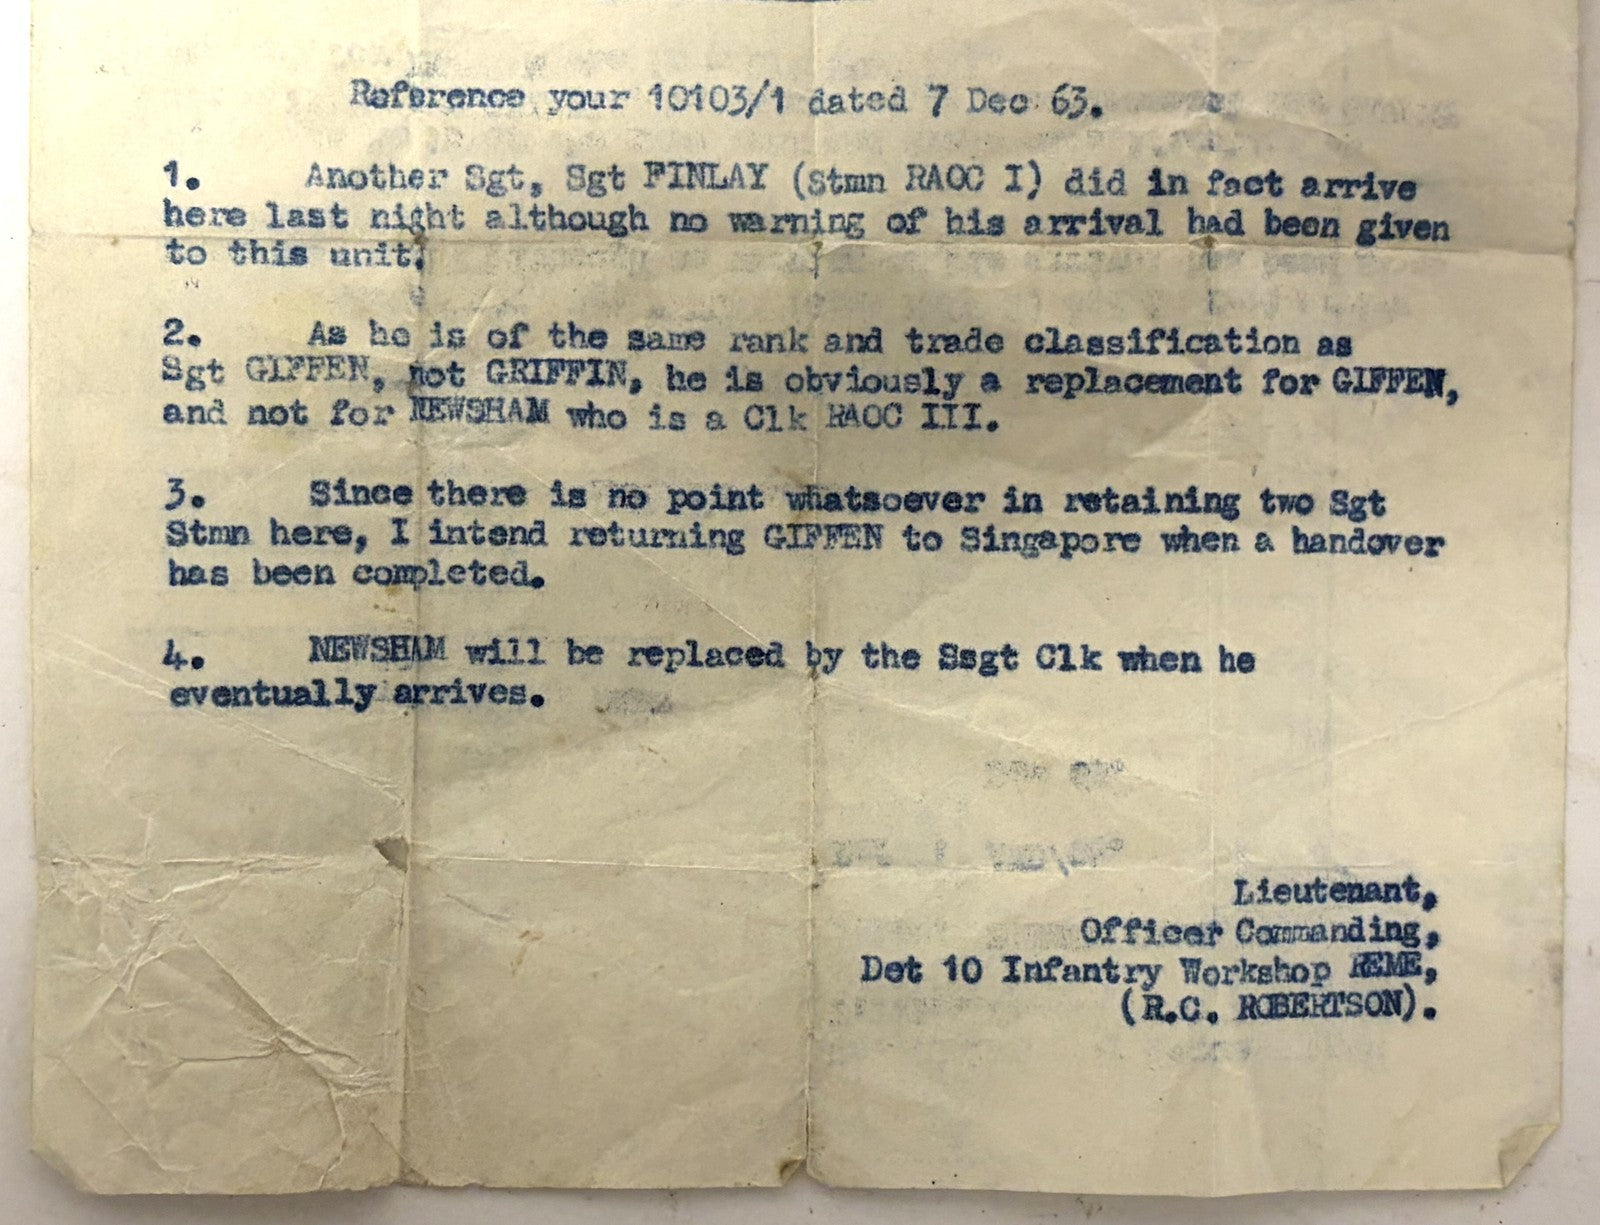 Reference your 10103/1 dated 7 Dec 63.
1. Another Sgt, Sgt FINLAY (Stmn RAOC I) did in fact arrive
here last night although no warning of his arrival had been given
to this unit.
2. As he is of the same rank and trade classification as
Sgt GIFFEN, not GRIFFIN, he is obviously a replacement for GIFFEN,
and not for NEWSHAM who is a Clk RAOC III.
3. Since there is no point whatsoever in retaining two Sgt
Stmn here, I intend returning GIFFEN to Singapore when a handover
has been completed.
4. NEWSHAM will be replaced by the Ssgt Clk when he
eventually arrives.
Lieutenant,
Officer Commanding,
Det 10 Infantry Workshop REME,
(R.C. ROBERTSON).